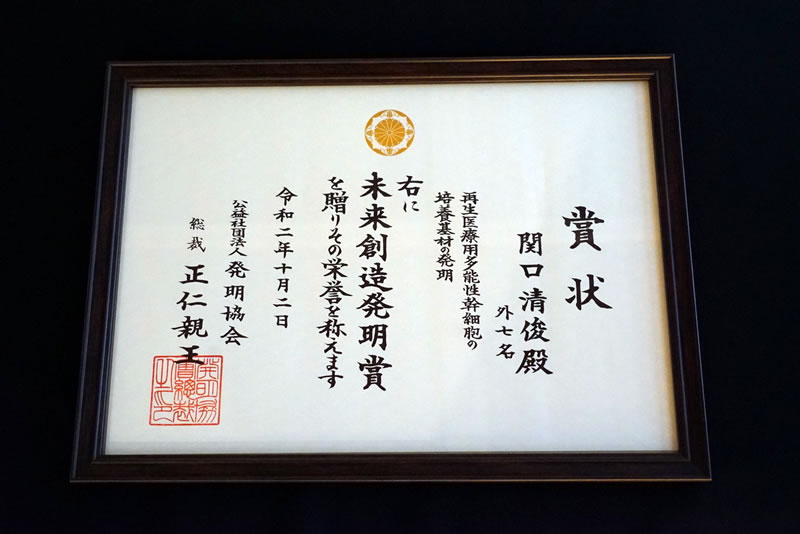 賞状
関口清俊殿
外七名
再生医療用多能性幹細胞の
培養基材の発明
右に
未来創造発明賞
を贈りその栄誉を称えます
令和二年十月二日
公益社団法人発明協会
総裁 正仁親王